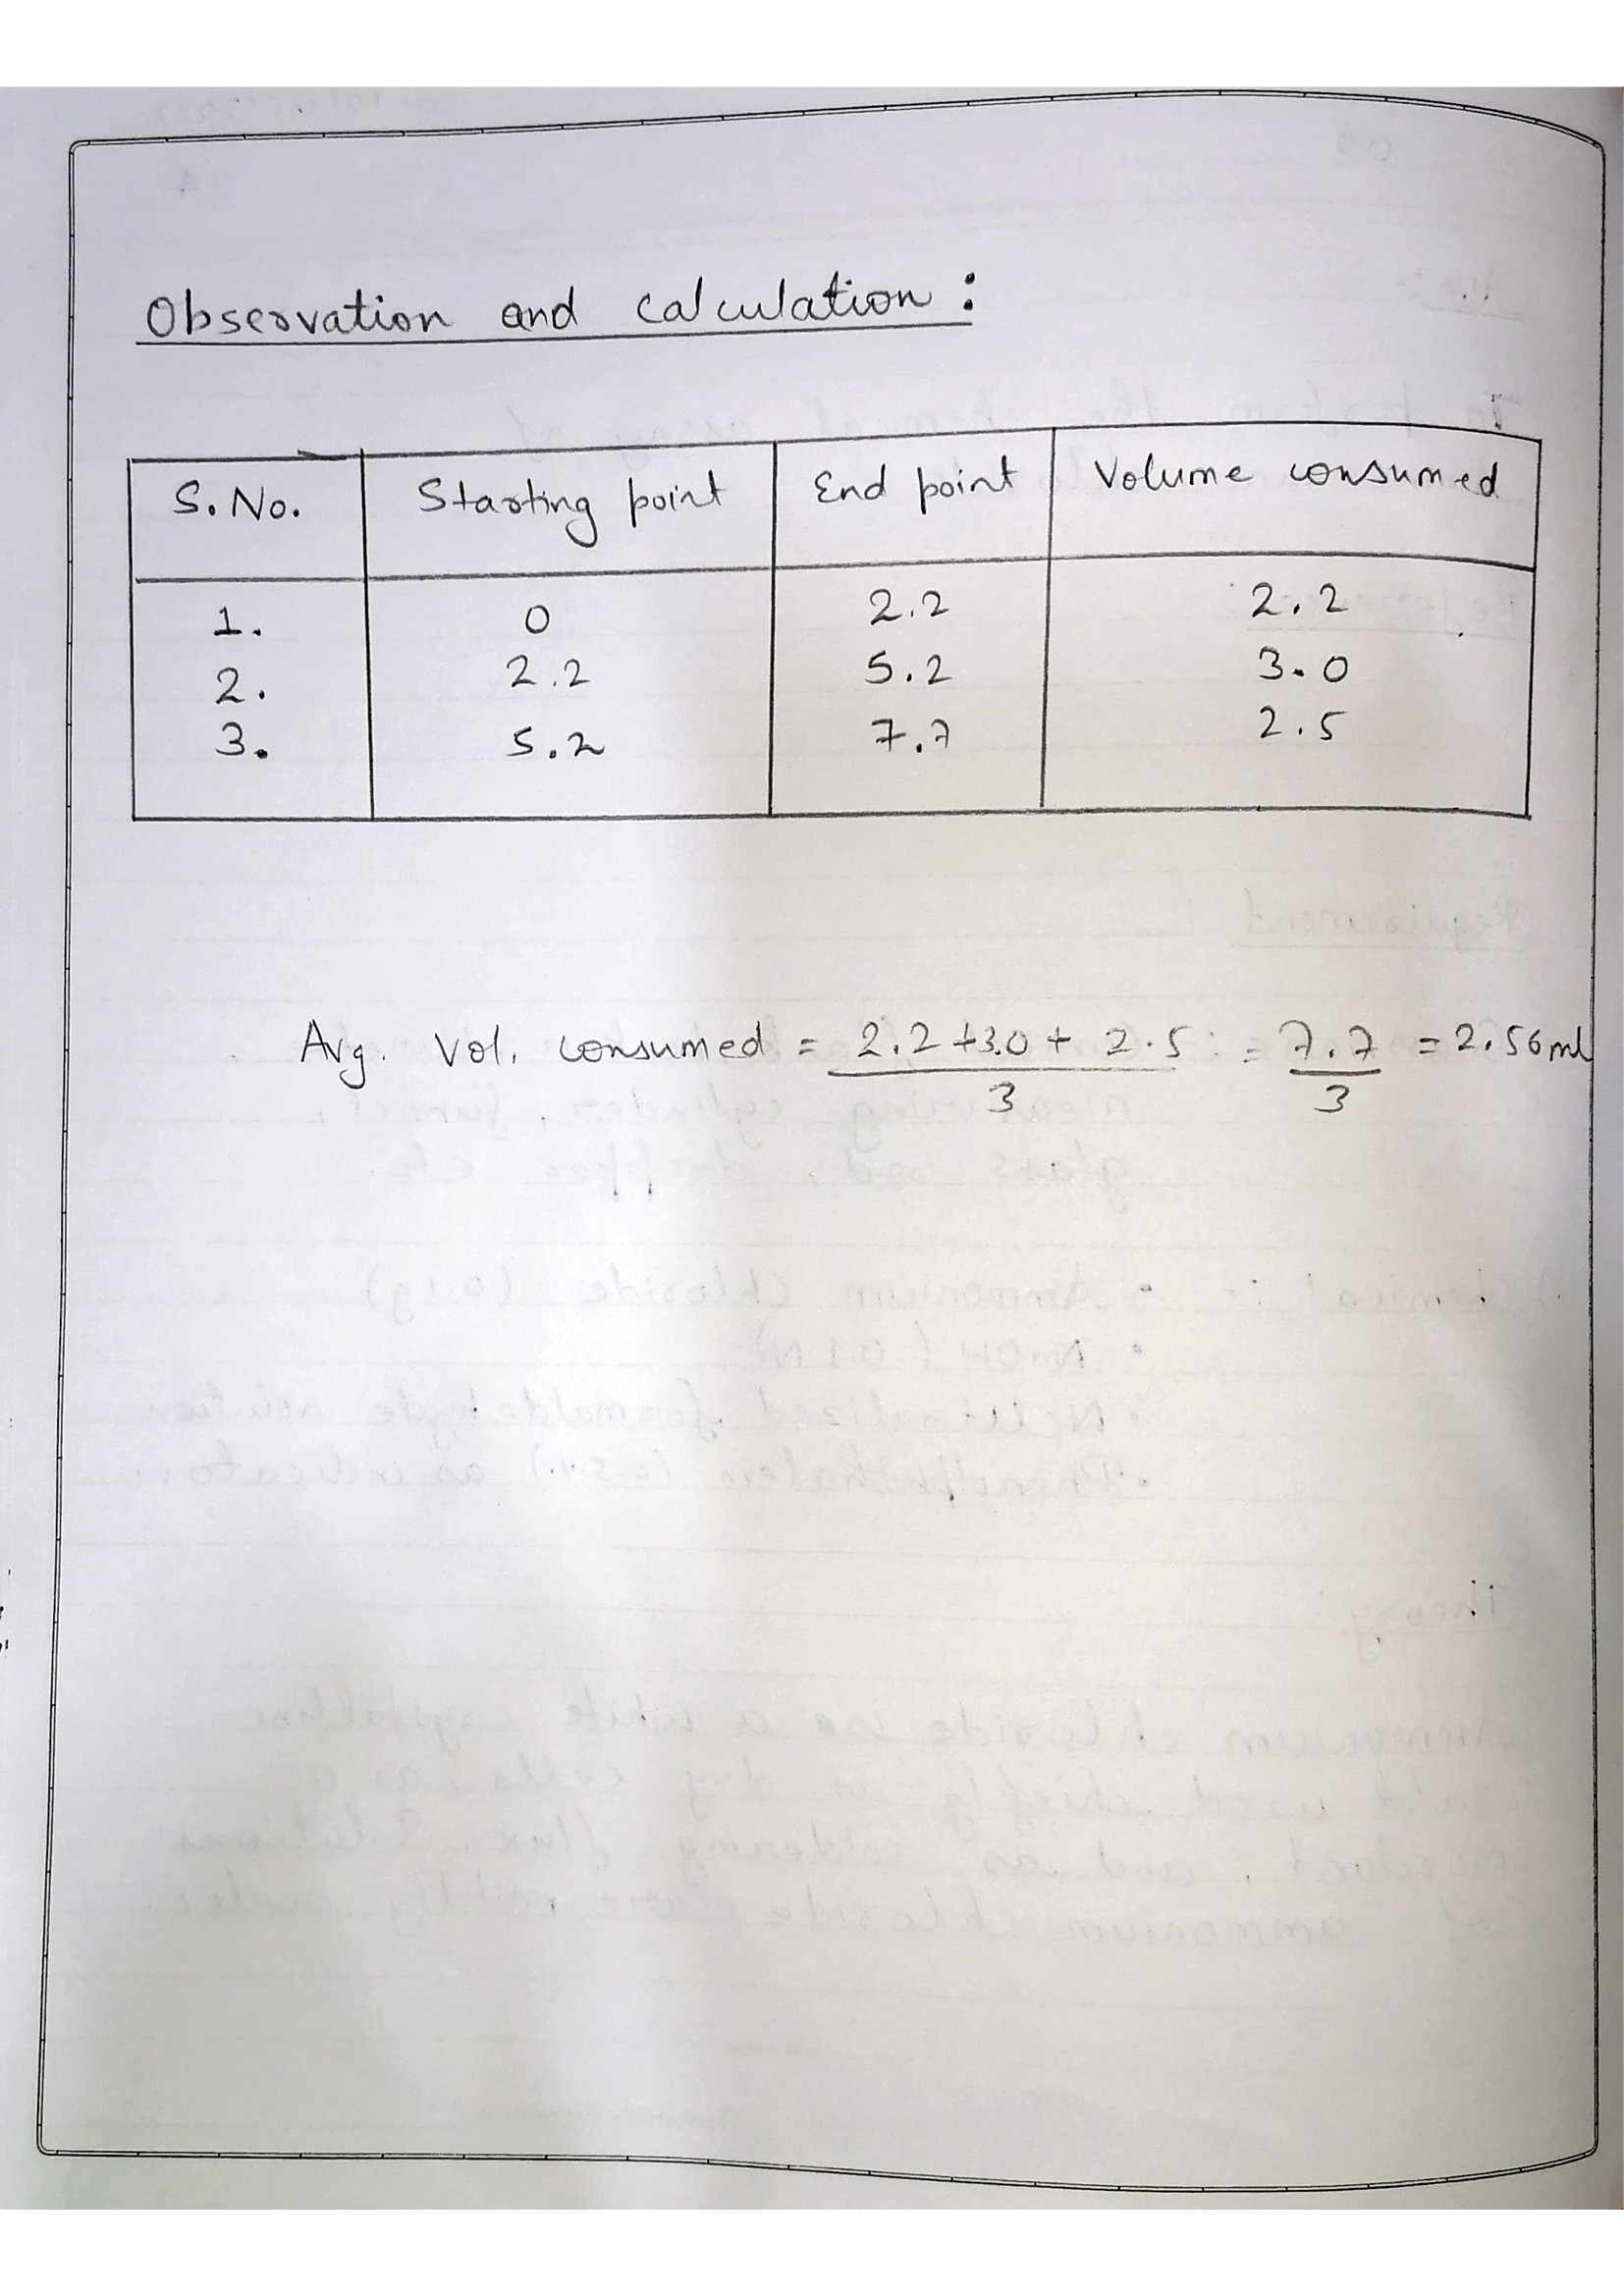 Observation and calculation :
S. No. Starting point End point Volume consumed
1. 0 2.2 2.2
2. 2.2 5.2 3.0
3. 5.2 7.7 2.5
Avg. Vol. consumed = 2.2 + 3.0 + 2.5 / 3 = 7.7 / 3 = 2.56 ml